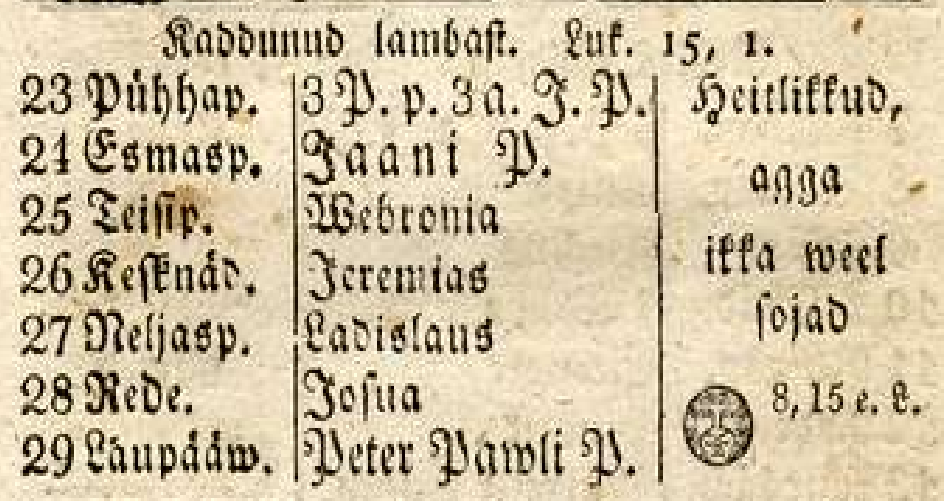 Kaddunud lambast. Luk. 15, 1.
23 Pühhap. 3 P. p. 3 a. J. P. Heitlikkud,
24 Esmasp. Jaani P. agga
25 Teisip. Webronia
26 Kesknäd. Jeremias ikka weel
27 Neljasp. Ladislaus sojad
28 Rede. Josua 8, 15 e. L.
29 Laupääw. Peter Pawli P.